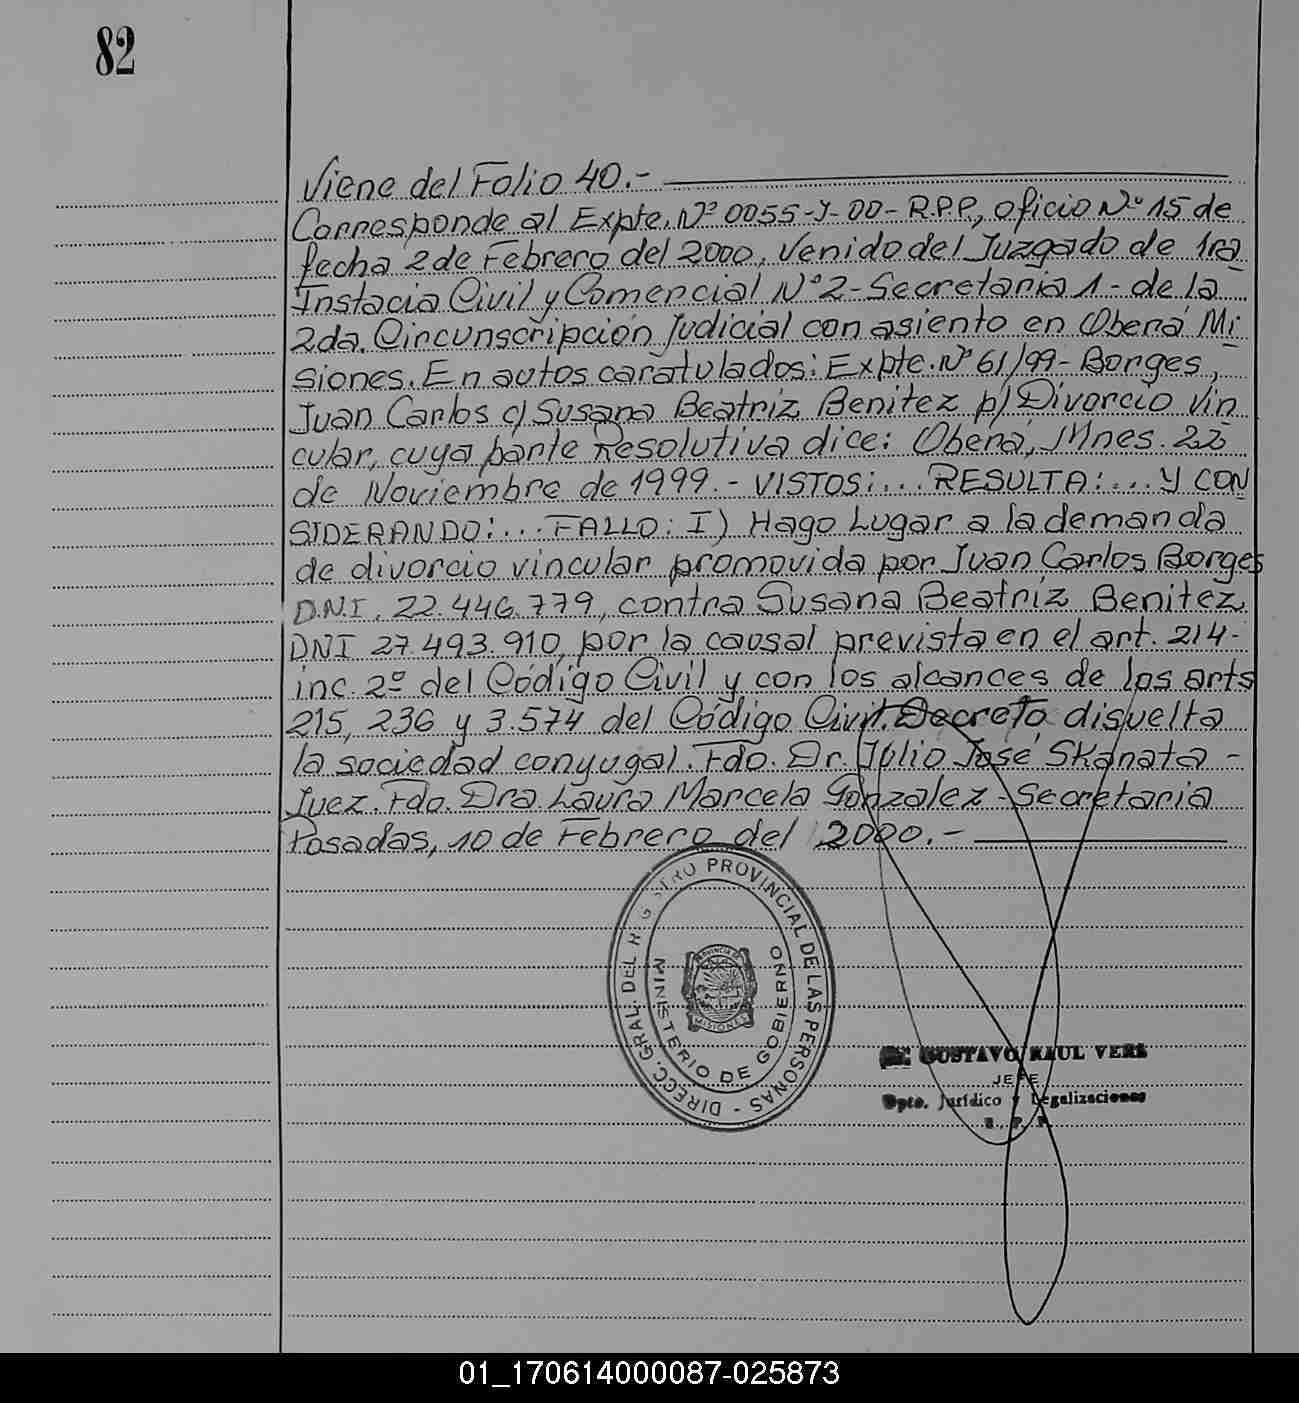 82
Viene del Folio 40.-
Corresponde al Expte. Nº 0055-Y-00-R.P.P, oficio Nº 15 de
fecha 2 de Febrero del 2000, Venido del Juzgado de 1ra
Instacia Civil y Comercial Nº2-Secretaria 1- de la
2da. Circunscripción Judicial con asiento en Oberá Mi
siones. En autos caratulados: Expte. Nº 61/99- Borges,
Juan Carlos c/ Susana Beatriz Benitez p/ Divorcio Vin
cular, cuya parte Resolutiva dice: Oberá, Mnes. 22
de Noviembre de 1999.- VISTOS:... RESULTA:... Y CON
SIDERANDO:... FALLO: I) Hago Lugar a la demanda
de divorcio vincular promovida por Juan Carlos Borges
D.N.I. 22.446.779, contra Susana Beatriz Benitez
DNI 27.493.910, por la causal prevista en el art. 214-
inc. 2º del Código Civil y con los alcances de los arts
215, 236 y 3.574 del Código Civil. Decreto disuelta
la sociedad conyugal. Fdo. Dr. Julio José Skanata -
Juez. Fdo. Dra. Laura Marcela Gonzalez - Secretaria
Posadas, 10 de Febrero del 2000.-
DIRECC. GRAL. DEL REGISTRO PROVINCIAL DE LAS PERSONAS -
MINISTERIO DE GOBIERNO
PROVINCIA DE
MISIONES
GUSTAVO RAUL VERS
JEFE
Dpto. Jurídico y Legalizaciones
R. P. P.
01_170614000087-025873